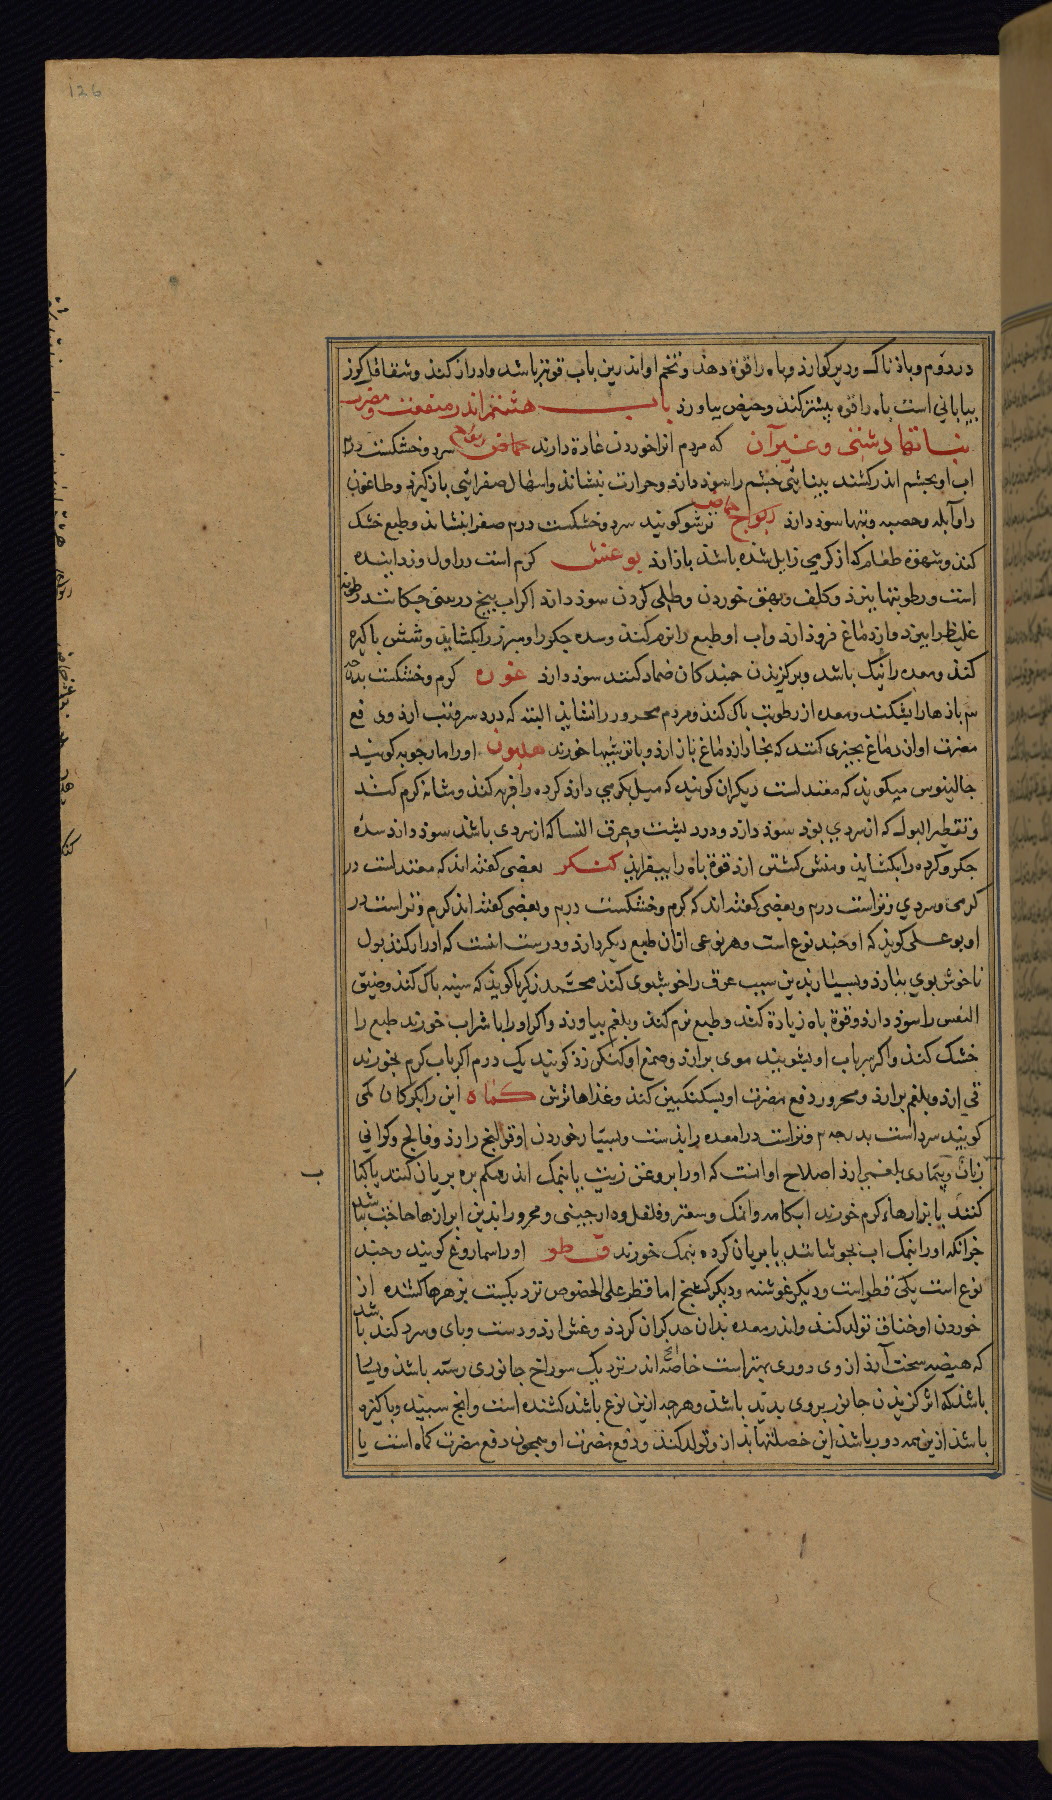 126
در دوم و باذناک و دیر کوارذ و باه را قوة دهذ و تخم او اندرین باب قوتر باشد و ادرار کند و شقاقل کوز
بیابانی است باه را قوه بیشتر کند و حیض بیاورذ باب هشتم اندر منفعت و مضرت
نباتها دشتی و غیر آن که مردم انرا خوردن عادة دارند حماض سرد و خشکست
اب او بچشم اندر کشند بینایی چشم را سوذ دارد و حرارت بنشاند و اسهال صفرایی بازکیرد و طاعون
را و آبله و حصبه و تبها سوذ دارد ریواج ترشو کویند سرد و خشکست درم صفرا بنشاند و طبع خشک
کند و شهوة طعام که از کرمی زایل شده باشد بازارد کرم است در اول و زدایندہ
است و رطوبتها ببرد و کلف و بهق خوردن و طلی کردن سوذ دارد اکر اب بیخ در بینی چکانند رطوبت
غلیظ را ببرد و از دماغ فروذ ارد و اب او طبع را نرم کند و سده جکر و سپرز را بکشاید و شش پاکیزه
کند و معده را نیک باشد و بر کزیدن ضماد کنند سوذ دارد کرم و خشکست بدرجه
سم باذها را بشکند و معده از رطوبت پاک کند و مردم محرور را نشاید البته که درد سر و تب ارد و دفع
مضرت او از دماغ بچیزی کنند که بخار از دماغ بازارد و با ترشیها خورند هلیون او را مارجوبه کویند
جالینوس میکوید که معتدلست دیکران کویند که میل بکرمی دارد کرده را فربه کند و مثانه کرم کند
و تقطیر البول که از سردی بوذ سوذ دارد و درد پشت و عرق النسا که از سردی باشد سوذ دارد سده
جکر و کرده را بکشاید و منش کشتن ارد قوة باه را بیفزاید کنکر بعضی کفته اند که معتدلست در
کرمی و سردی و تراست درم و بعضی کفته اند که کرم و خشکست درم و بعضی کفته اند کرم و تراست در
ا و بوعلی کوید که او چند نوع است و هر نوعی ازان طبع دیکر دارد و درست انست که ادرار کند بول
ناخوش بوی بیارد و بسیار بدین سبب عرق را خوشبوی کند محمد زکریا کوید که سینه پاک کند و ضیق
النفس را سوذ دارد و قوة باه زیادة کند و طبع نرم کند و بلغم بیاورد و اکر او را با شراب خورند طبع را
خشک کند و اکر سر باب او بشویند موی برارد و صمغ او کنکرزد کویند یک درم اکر باب کرم بخورند
قی ارد و بلغم برارد و محرور دفع مضرت او بسکنکبین کند و غذاها ترش کماه این را بکرکان کمی
کویند سرد است بدرجه م و تراست در ا معده را بذست و بسیار خوردن او قولنج ارد و فالج و کرانی
زبان و بیماری بلغمی ارد اصلاح او انست که او را بروغن زیت یا بنمک اندر شکم بره بریان کنند یا کباب
کنند با بزارهاء کرم خورند ابکامه و انمک و سعتر و فلفل و دارچینی و محرور را بدین ابزارها حاجت نباشد
جزانکه او را بنمک اب بجوشانند یا بریان کرده بنمک خورند فطر او را سماروغ کویند و چند
نوع است یکی فطر است و دیکر غوشنه و دیکر کشنج اما فطر علی الخصوص نزدیکست بزهرها کشنده از
خوردن او خناق تولد کند و اندر معده بدان حد کران کردد و غشی ارد و دست و پای و سرد کند باشد
که هیضه سخت آرد از وی دوری بهتر است خاصه انچ اندر نزدیک سوراخ جانوری رسته باشد و بسا
باشد که اثر کزیدن جانور بر وی بدید باشد و هرچه ازین نوع باشد کشنده است و انچ سپید و پاکیزه
باشد ازین همه دور باشد این خصلتها بد ازو تولد کند و دفع مضرت او همچون دفع مضرت کماه است یا
ب